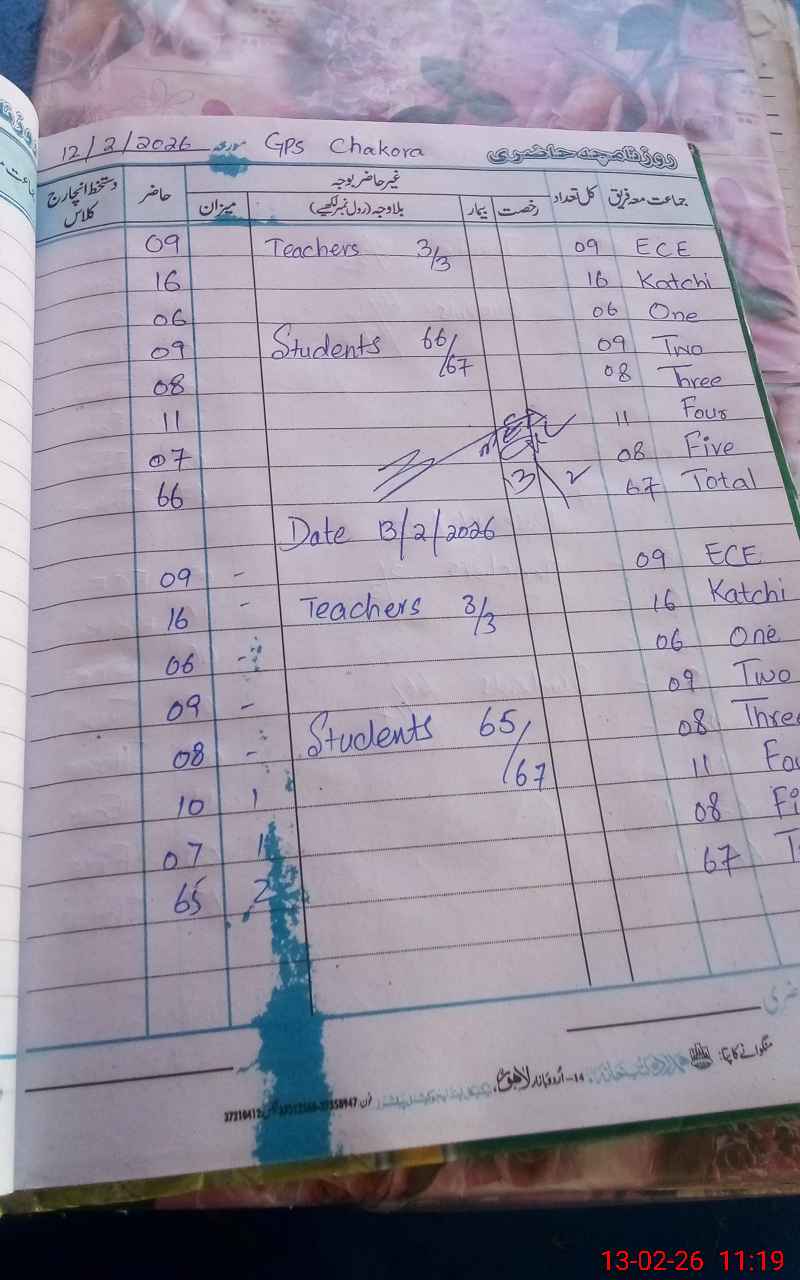 12/2/2026 مورخہ GPS Chakora روزنامچہ حاضری
جماعت معہ فریق کل تعداد غیر حاضر بوجہ حاضر دستخط انچارج کلاس
رخصت بیمار بلاوجہ (رول نمبر لکھیے) میزان
09 Teachers 3/3 09 ECE
16 16 Katchi
06 06 One
09 Students 66/67 09 Two
08 08 Three
11 11 Four
07 08 Five
66 67 Total
Date 13/2/2026
09 - 09 ECE
16 - Teachers 3/3 16 Katchi
06 - 06 One
09 - 09 Two
08 - Students 65/67 08 Three
10 1 11 Fou
07 1 08 Fi
65 2 67 T
منگوانے کا پتہ: اردو بازار لاہور
13-02-26 11:19